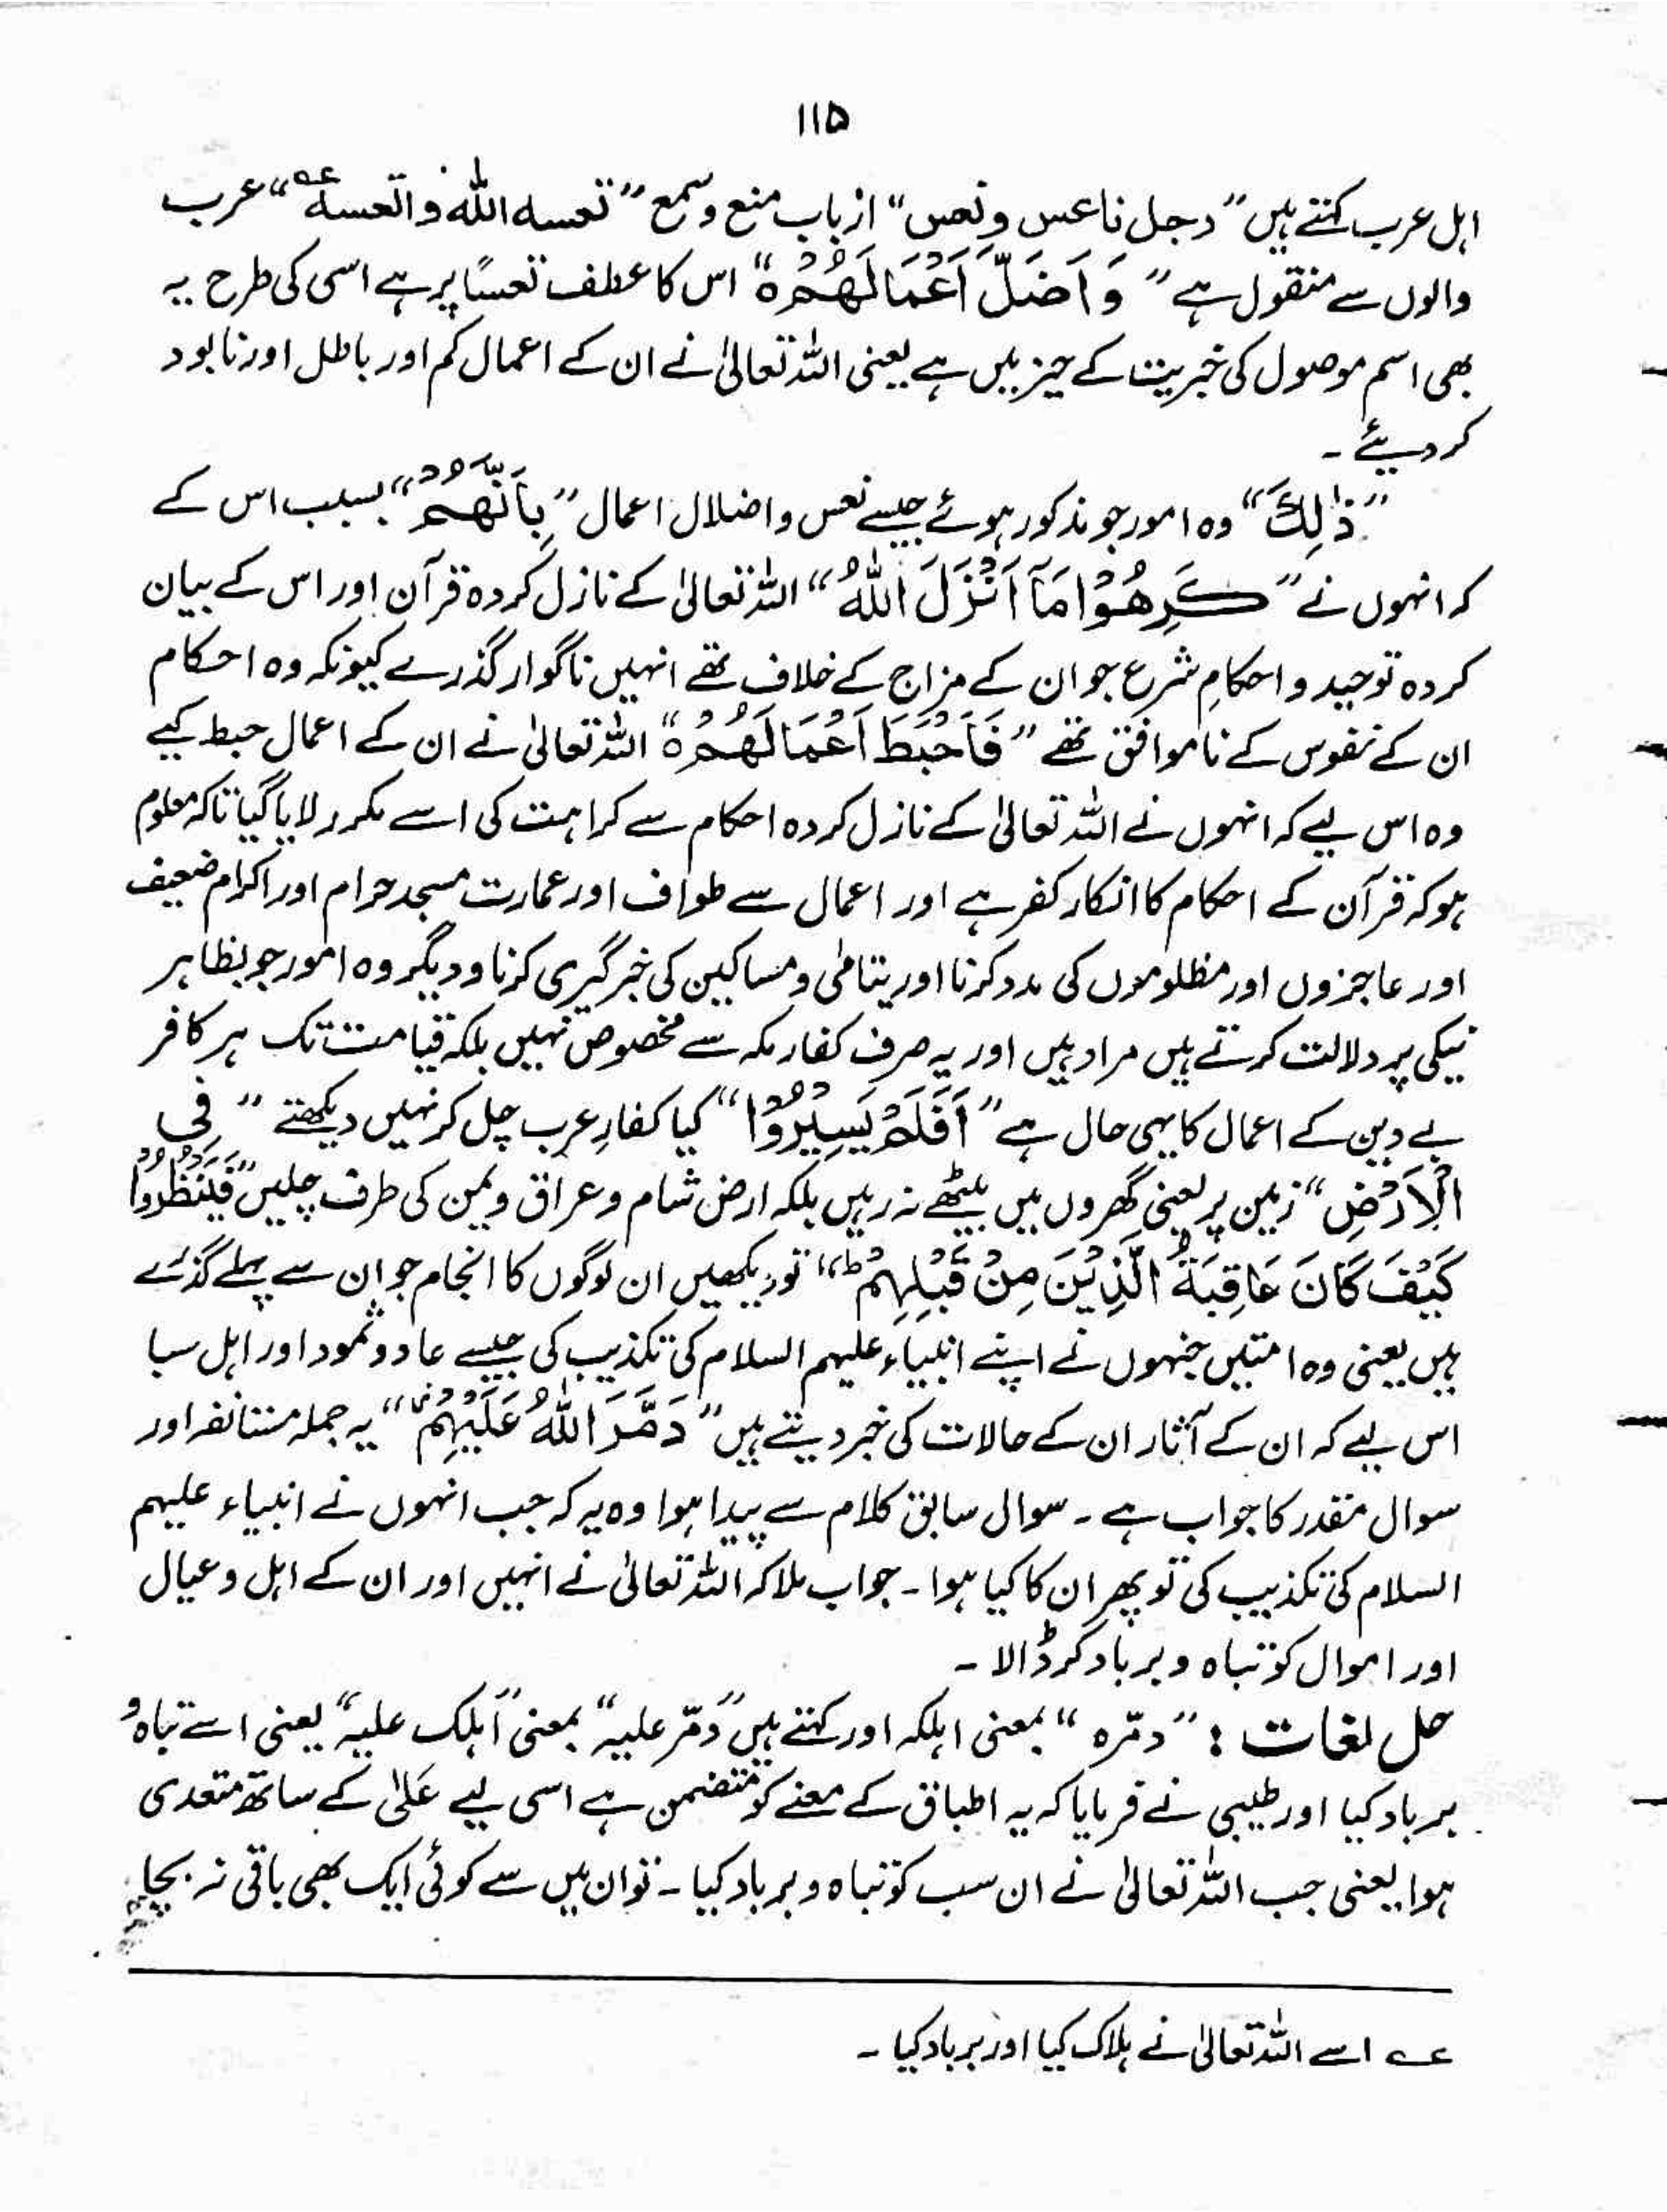 ۱۱۵
اہل عرب کہتے ہیں ”رجل ناعس ونعس“ از باب منع وسمع ”تعسہ اللہ واتعسہ عہ“ عرب
والوں سے منقول ہے ”وَاَضَلَّ اَعْمَالَهُمْ ۝“ اس کا عطف تعسًا پر ہے اسی کی طرح یہ
بھی اسم موصول کی خبریت کے حیز میں ہے یعنی اللہ تعالیٰ نے ان کے اعمال گم اور باطل اور نابود
کر دیئے ۔
”ذٰلِكَ“ وہ امور جو مذکور ہوئے جیسے نعس و اضلال اعمال ”بِاَنَّهُمْ“ بسبب اس کے
کہ انہوں نے ”كَرِهُوْا مَآ اَنْزَلَ اللّٰهُ“ اللہ تعالیٰ کے نازل کردہ قرآن اور اس کے بیان
کردہ توحید و احکامِ شرع جو ان کے مزاج کے خلاف تھے انہیں ناگوار گذرے کیونکہ وہ احکام
ان کے نفوس کے ناموافق تھے ”فَاَحْبَطَ اَعْمَالَهُمْ ۝“ اللہ تعالیٰ نے ان کے اعمال حبط کیے
وہ اس لیے کہ انہوں نے اللہ تعالیٰ کے نازل کردہ احکام سے کراہت کی اسے مکرر لایا گیا تاکہ معلوم
ہو کہ قرآن کے احکام کا انکار کفر ہے اور اعمال سے طواف اور عمارت مسجد حرام اور اکرام ضعیف
اور عاجزوں اور مظلوموں کی مدد کرنا اور یتامٰی و مساکین کی خبر گیری کرنا و دیگر وہ امور جو بظاہر
نیکی پر دلالت کرتے ہیں مراد ہیں اور یہ صرف کفار مکہ سے مخصوص نہیں بلکہ قیامت تک ہر کافر
بے دین کے اعمال کا یہی حال ہے ”اَفَلَمْ يَسِيْرُوْا“ کیا کفارِ عرب چل کر نہیں دیکھتے ”فِی
الْاَرْضِ“ زمین پر یعنی گھروں میں بیٹھے نہ رہیں بلکہ ارض شام و عراق و یمن کی طرف چلیں ”فَيَنْظُرُوْا
كَيْفَ كَانَ عَاقِبَةُ الَّذِيْنَ مِنْ قَبْلِهِمْ ط“ تو دیکھیں ان لوگوں کا انجام جو ان سے پہلے گذرے
ہیں یعنی وہ امتیں جنہوں نے اپنے انبیاء علیہم السلام کی تکذیب کی جیسے عاد و ثمود اور اہل سبا
اس لیے کہ ان کے آثار ان کے حالات کی خبر دیتے ہیں ”دَمَّرَ اللّٰهُ عَلَيْهِمْ“ یہ جملہ مستانفہ اور
سوال مقدر کا جواب ہے ۔ سوال سابق کلام سے پیدا ہوا وہ یہ کہ جب انہوں نے انبیاء علیہم
السلام کی تکذیب کی تو پھر ان کا کیا ہوا ۔ جواب ملا کہ اللہ تعالیٰ نے انہیں اور ان کے اہل و عیال
اور اموال کو تباہ و برباد کر ڈالا ۔
حل لغات : ”دمّرہ“ بمعنی اہلکہ اور کہتے ہیں ”دمّر علیہ“ بمعنی ”اہلک علیہ“ یعنی اسے تباہ و
برباد کیا اور طیبی نے فرمایا کہ یہ اطباق کے معنے کو متضمن ہے اسی لیے عَلٰی کے ساتھ متعدی
ہوا یعنی جب اللہ تعالیٰ نے ان سب کو تباہ و برباد کیا ۔ تو ان میں سے کوئی ایک بھی باقی نہ بچا
عہ اسے اللہ تعالیٰ نے ہلاک کیا اور برباد کیا ۔